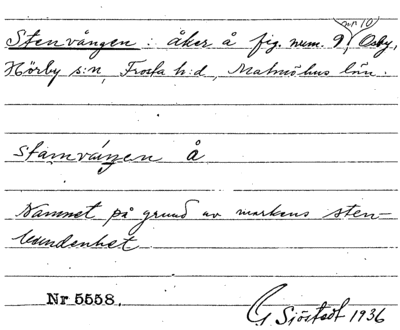 nr 10
Stenvången: åker å fig. num. 9, Osby,
Hörby s:n, Frosta h:d, Malmöhus län.
stamváŋen å
Namnet på grund av markens sten-
bundenhet
Nr 5558.
G Sjöstedt 1936